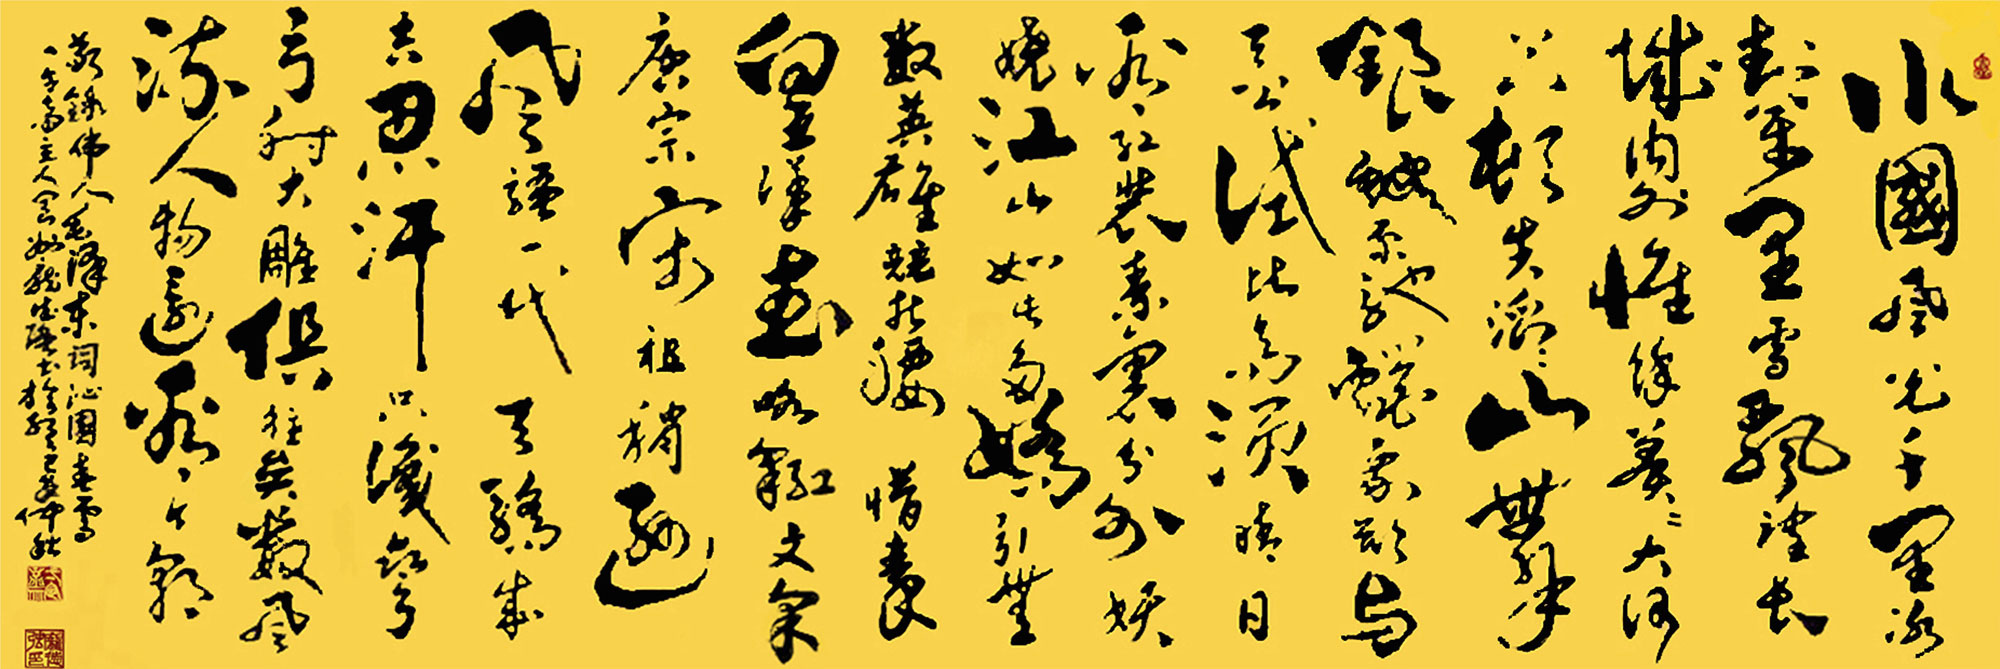 北國風光千里冰
封萬里雪飄望長
城内外惟餘莽莽大河
上下頓失滔滔山舞
銀蛇原馳蠟象欲与
天公試比高須晴日
看红裝素裹分外妖
嬈江山如此多嬌引無
數英雄競折腰惜秦
皇漢武略輸文采
唐宗宋祖稍遜
風騷一代天驕成
吉思汗只識彎
弓射大雕俱往矣數風
流人物還看今朝
敬錄偉人毛澤東詞沁園春雪
主人 書於 仲秋